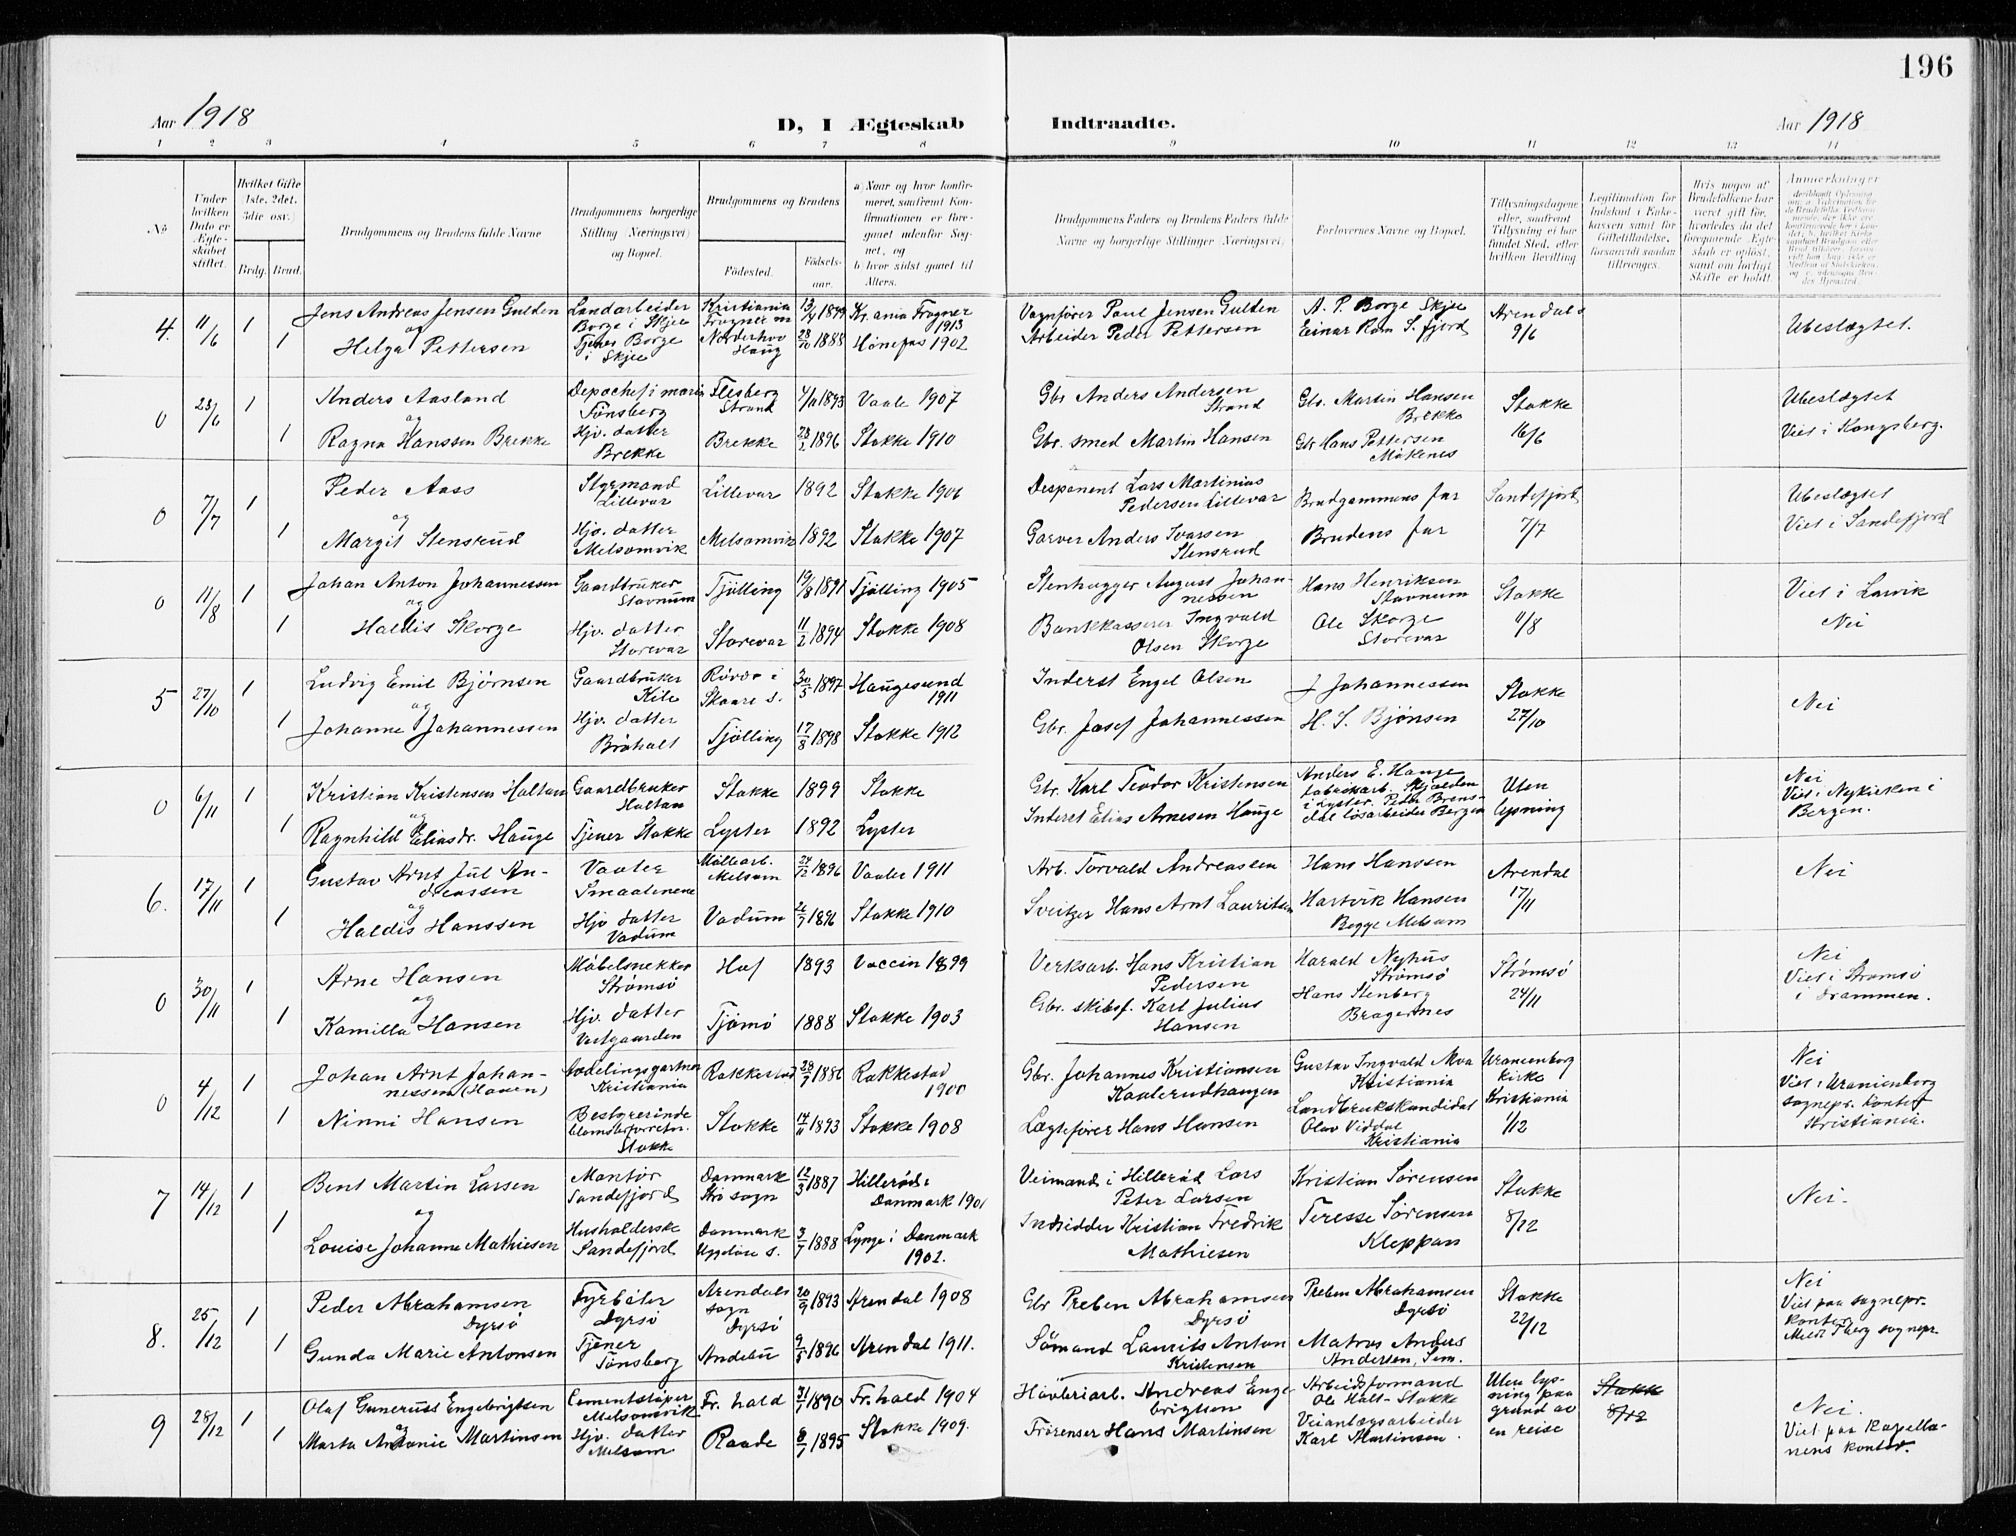 196
Aar 1918
D, I Ægteskab
Indtraadte.
Aar 1918
1 2 3 4 5 6 7 8 9 10 11 12 13 14
No
Under hvilken Dato er Ægteskabet stiftet.
Hvilket Gifte 1ste, 2det, 3die osv.)
Brdg. Brud.
Brudgommens og Brudens fulde Navne
Brudgommens borgerlige Stilling (Næringsvei) og Bopæl.
Brudgommens og Brudens
Fødested.
Fødselsaar.
a) Naar og hvor konfirmeret, saafremt Konfirmationen er foregaaet udenfor Sognet, og
b) hvor sidst gaaet til Alters.
Brudgommens Faders og Brudens Faders fulde Navne og borgerlige Stillinger (Næringsvei)
Forlovernes Navne og Bopæl.
Tillysningsdagene eller, saafremt Tillysning ei har fundet Sted, efter hvilken Bevilling
Legitimation for Indskud i Enkekassen samt for Giftetilladelse, forsaavidt saadan tiltrænges.
Hvis nogen af Brudefolkene har været gift før, hvorledes du det foregaaende Ægteskab er opløst, samt om lovligt Skifte er holdt.
Anmærkninger
4. 11/6 1 Jens Andreas Jensen Gulden Landarbeider Borge i Skjee Kristiania Frogner m 13/4 1899 Kr.ania Frogner 1913 Vognfører Paul Jensen Gulden A. P. Borge Skjee Arendals 9/6 Ubeslægtet.
og
1 Helga Pettersen Tjener Borge i Skjee Norderhov Haug 28/10 1888 Hønefos 1902 Arbeider Peder Pettersen Einar Kam S. fjord
0 23/6 1 Anders Aasland Depochef i marin Tønsberg Flesberg Strand 4/11 1893 Vaale 1907 Gbr Anders Andersen Strand Gbr. Martin Hansen Brekke Stokke 16/6 Ubeslægtet
og
1 Ragna Hanssen Brekke Hjv. datter Brekke Brekke 28/2 1896 Stokke 1910 Gbr. smed Martin Hansen Gbr Hans Pettersen Møkenes Viet i Kongsberg.
0 7/7 1 Peder Aass Styrmand Lillevar Lillevar 1892 Stokke 1906 Desponent Lars Martinius Pedersen Lillevar Brudgommens far Sandefjord 7/7 Ubeslægtet
og
1 Margit Stensrud Hjv. datter Melsomvik Melsomvik 1892 Stokke 1907 Garver Anders Ivarsen Stensrud Brudens far Viet i Sandefjord
0 11/8 1 Johan Anton Johannessen Gaardbruker Stavnum Tjølling 19/8 1891 Tjølling 1905 Stenhugger August Johannessen Hans Henriksen Stavnum Stokke 11/8 Viet i Larvik
og
1 Haldis Skorge Hjv. datter Storevar Storevar 11/2 1894 Stokke 1908 Bankkasserer Ingvald Olsen Skorge Ole Skorge Storevar Nei
5 27/10 1 Ludvig Emil Bjørnsen Gaardbruker Kile Røvær i Skaare s. 30/5 1897 Haugesund 1911 Inderst Engel Olsen J Johannessen Stokke 27/10 Nei
og
1 Johanne Johannessen Hjv. datter Bråholt Tjølling 17/8 1898 Stokke 1912 Gbr. Josef Johannessen H. S. Bjønsen
0 6/11 1 Kristian Kristensen Holtan Gaardbruker Holtan Stokke 1899 Stokke Gbr. Karl Teodor Kristensen Anders E. Hauge fabrikarb. Skjolden i Lyster. Peder Brensdal løsarbeider Bergen Uten lysning Nei
og
1 Ragnhild Eliasdr. Hauge Tjener Stokke Lyster 1892 Lyster Inderst Elias Arnesen Hauge Viet i Nykirken i Bergen.
6. 17/11 1 Gustav Arnt Jul Andreassen Vaaler Smaalenene Møllearb. Melsom 24/12 1896 Vaaler 1911 Arb. Torvald Andreassen Hans Hanssen Arendal 17/11 Nei
og
1 Haldis Hanssen Hjv datter Vadum Vadum 26/7 1896 Stokke 1910 Sveitzer Hans Arnt Lauritsen Hartvik Hansen Begge Melsom
0 30/11 1 Arne Hansen Møbelsnekker Strømsö Hof 1893 Vaccin 1899 Verksarb. Hans Kristian Pedersen Harald Nyhus Strømsö Strømsö 24/11 Nei
og
1 Kamilla Hansen Hjv. datter Vestgaarden Tjømø 1888 Stokke 1903 Gbr. skibsf. Karl Julius Hansen Hans Stenberg Bragernes Viet i Strømsö i Drammen.
0 4/12 1 Johan Arnt Johannessen (Haven) Avdelingsgartner Kristiania Rakkestad 28/7 1886 Rakkestad 1900 Gbr. Johannes Kristiansen Kaalerudhaugen Gustav Ingvald Moa Kristiania Uranienborg kirke Kristiania 1/12 Nei
1 Ninni Hansen Bestyrerinde blomsterforretn. Stokke Stokke 14/11 1893 Stokke 1908 Lægtefører Hans Hansen Landbrukskandidat Olav Viddal Kristiania Viet i Uranienborg sognepr. kontor Kristiania.
7 14/12 1 Bent Martin Larsen Montør Sandefjord Danmark Strø sogn 12/3 1887 Hillerød Danmark 1901 Veimand i Hillerød Lars Peter Larsen Kristian Sørensen Stokke 8/12 Nei.
og
1 Louise Johanne Mathiesen Husholderske Sandefjord Danmark Uggeløse s. 3/7 1888 Lynge i Danmark 1902. Indsidder Kristian Fredrik Mathiesen Teresse Sørensen Kleppan
8. 25/12 1 Peder Abrahamsen Dyrsø Fyrbøter Dyrsø Arendals sogn Dyrsø 20/9 1893 Arendal 1908 Gbr Preben Abrahamsen Dyrsø Preben Abrahamsen Dyrsø Stokke 22/12 Nei
1 Gunda Marie Antonsen Tjener Tønsberg Andebu 9/5 1896 Arendal 1911. Sømand Laurits Anton Kristensen Matros Anders Andersen, Sem. Viet paa sognepr. kontor Meldt Tberg sognepr
9 28/12 1 Olaf Gunerius Engebrigtsen Cementstøper Melsomvik Fr. hald 31/1 1890 Fr. hald 1904 Høvleriarb. Andreas Engebrigtsen Arbeidsformand Ole Holt- Stokke Uten lysning paa grund av en reise Stokke 8/12 Nei.
og
1 Marta Antonie Martinsen Hjv. datter Melsom Raade 8/1 1895 Stokke 1909. Frørenser Hans Martinsen Veianlægsarbeider Karl Martinsen. Viet paa kapellanens kontor.